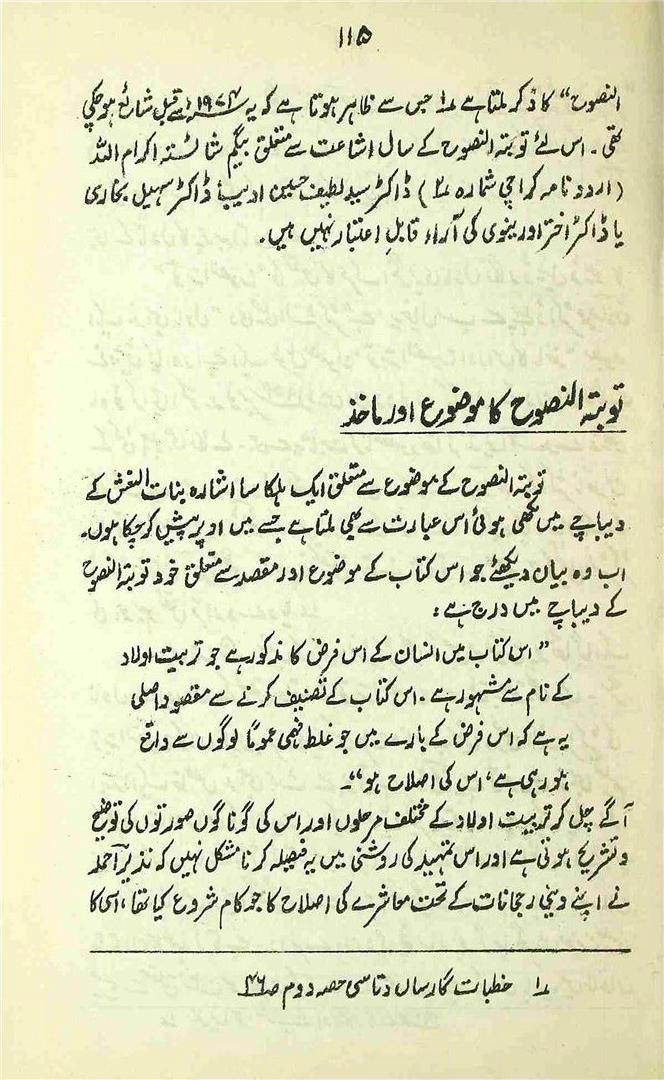 ۱۱۵
النصوح“ کا ذکر ملتا ہے ۱؎ جس سے ظاہر ہوتا ہے کہ یہ ۱۹۷۴ء سے قبل شائع ہو چکی
تھی۔ اس لئے توبتہ النصوح کے سال اشاعت سے متعلق بیگم شائستہ اکرام اللہ
(اردو نامہ کراچی شمارہ ۲۸) ڈاکٹر سید لطیف حسین ادیب ڈاکٹر سہیل بخاری
یا ڈاکٹر اختر اورینوی کی آراء قابل اعتبار نہیں ہیں۔
توبتہ النصوح کا موضوع اور ماخذ
توبتہ النصوح کے موضوع سے متعلق ایک ہلکا سا اشارہ بنات النعش کے
دیباچے میں لکھی ہوئی اس عبارت سے بھی ملتا ہے جسے میں اوپر پیش کر چکا ہوں۔
اب وہ بیان دیکھئے جو اس کتاب کے موضوع اور مقصد سے متعلق خود توبتہ النصوح
کے دیباچے میں درج ہے:
”اس کتاب میں انسان کے اس فرض کا مذکور ہے جو تربیت اولاد
کے نام سے مشہور ہے۔ اس کتاب کے تصنیف کرنے سے مقصود اصلی
یہ ہے کہ اس فرض کے بارے میں جو غلط فہمی عموماً لوگوں سے واقع
ہو رہی ہے، اس کی اصلاح ہو“۔
آگے چل کر تربیت اولاد کے مختلف مرحلوں اور اس کی گوناگوں صورتوں کی توضیح
و تشریح ہوئی ہے اور اس تمہید کی روشنی میں یہ فیصلہ کرنا مشکل نہیں کہ نذیر احمد
نے اپنے دینی رجحانات کے تحت معاشرے کی اصلاح کا جو کام شروع کیا تھا، اسی کا
۱؎ خطبات گارساں دتاسی حصہ دوم ص ۴۶